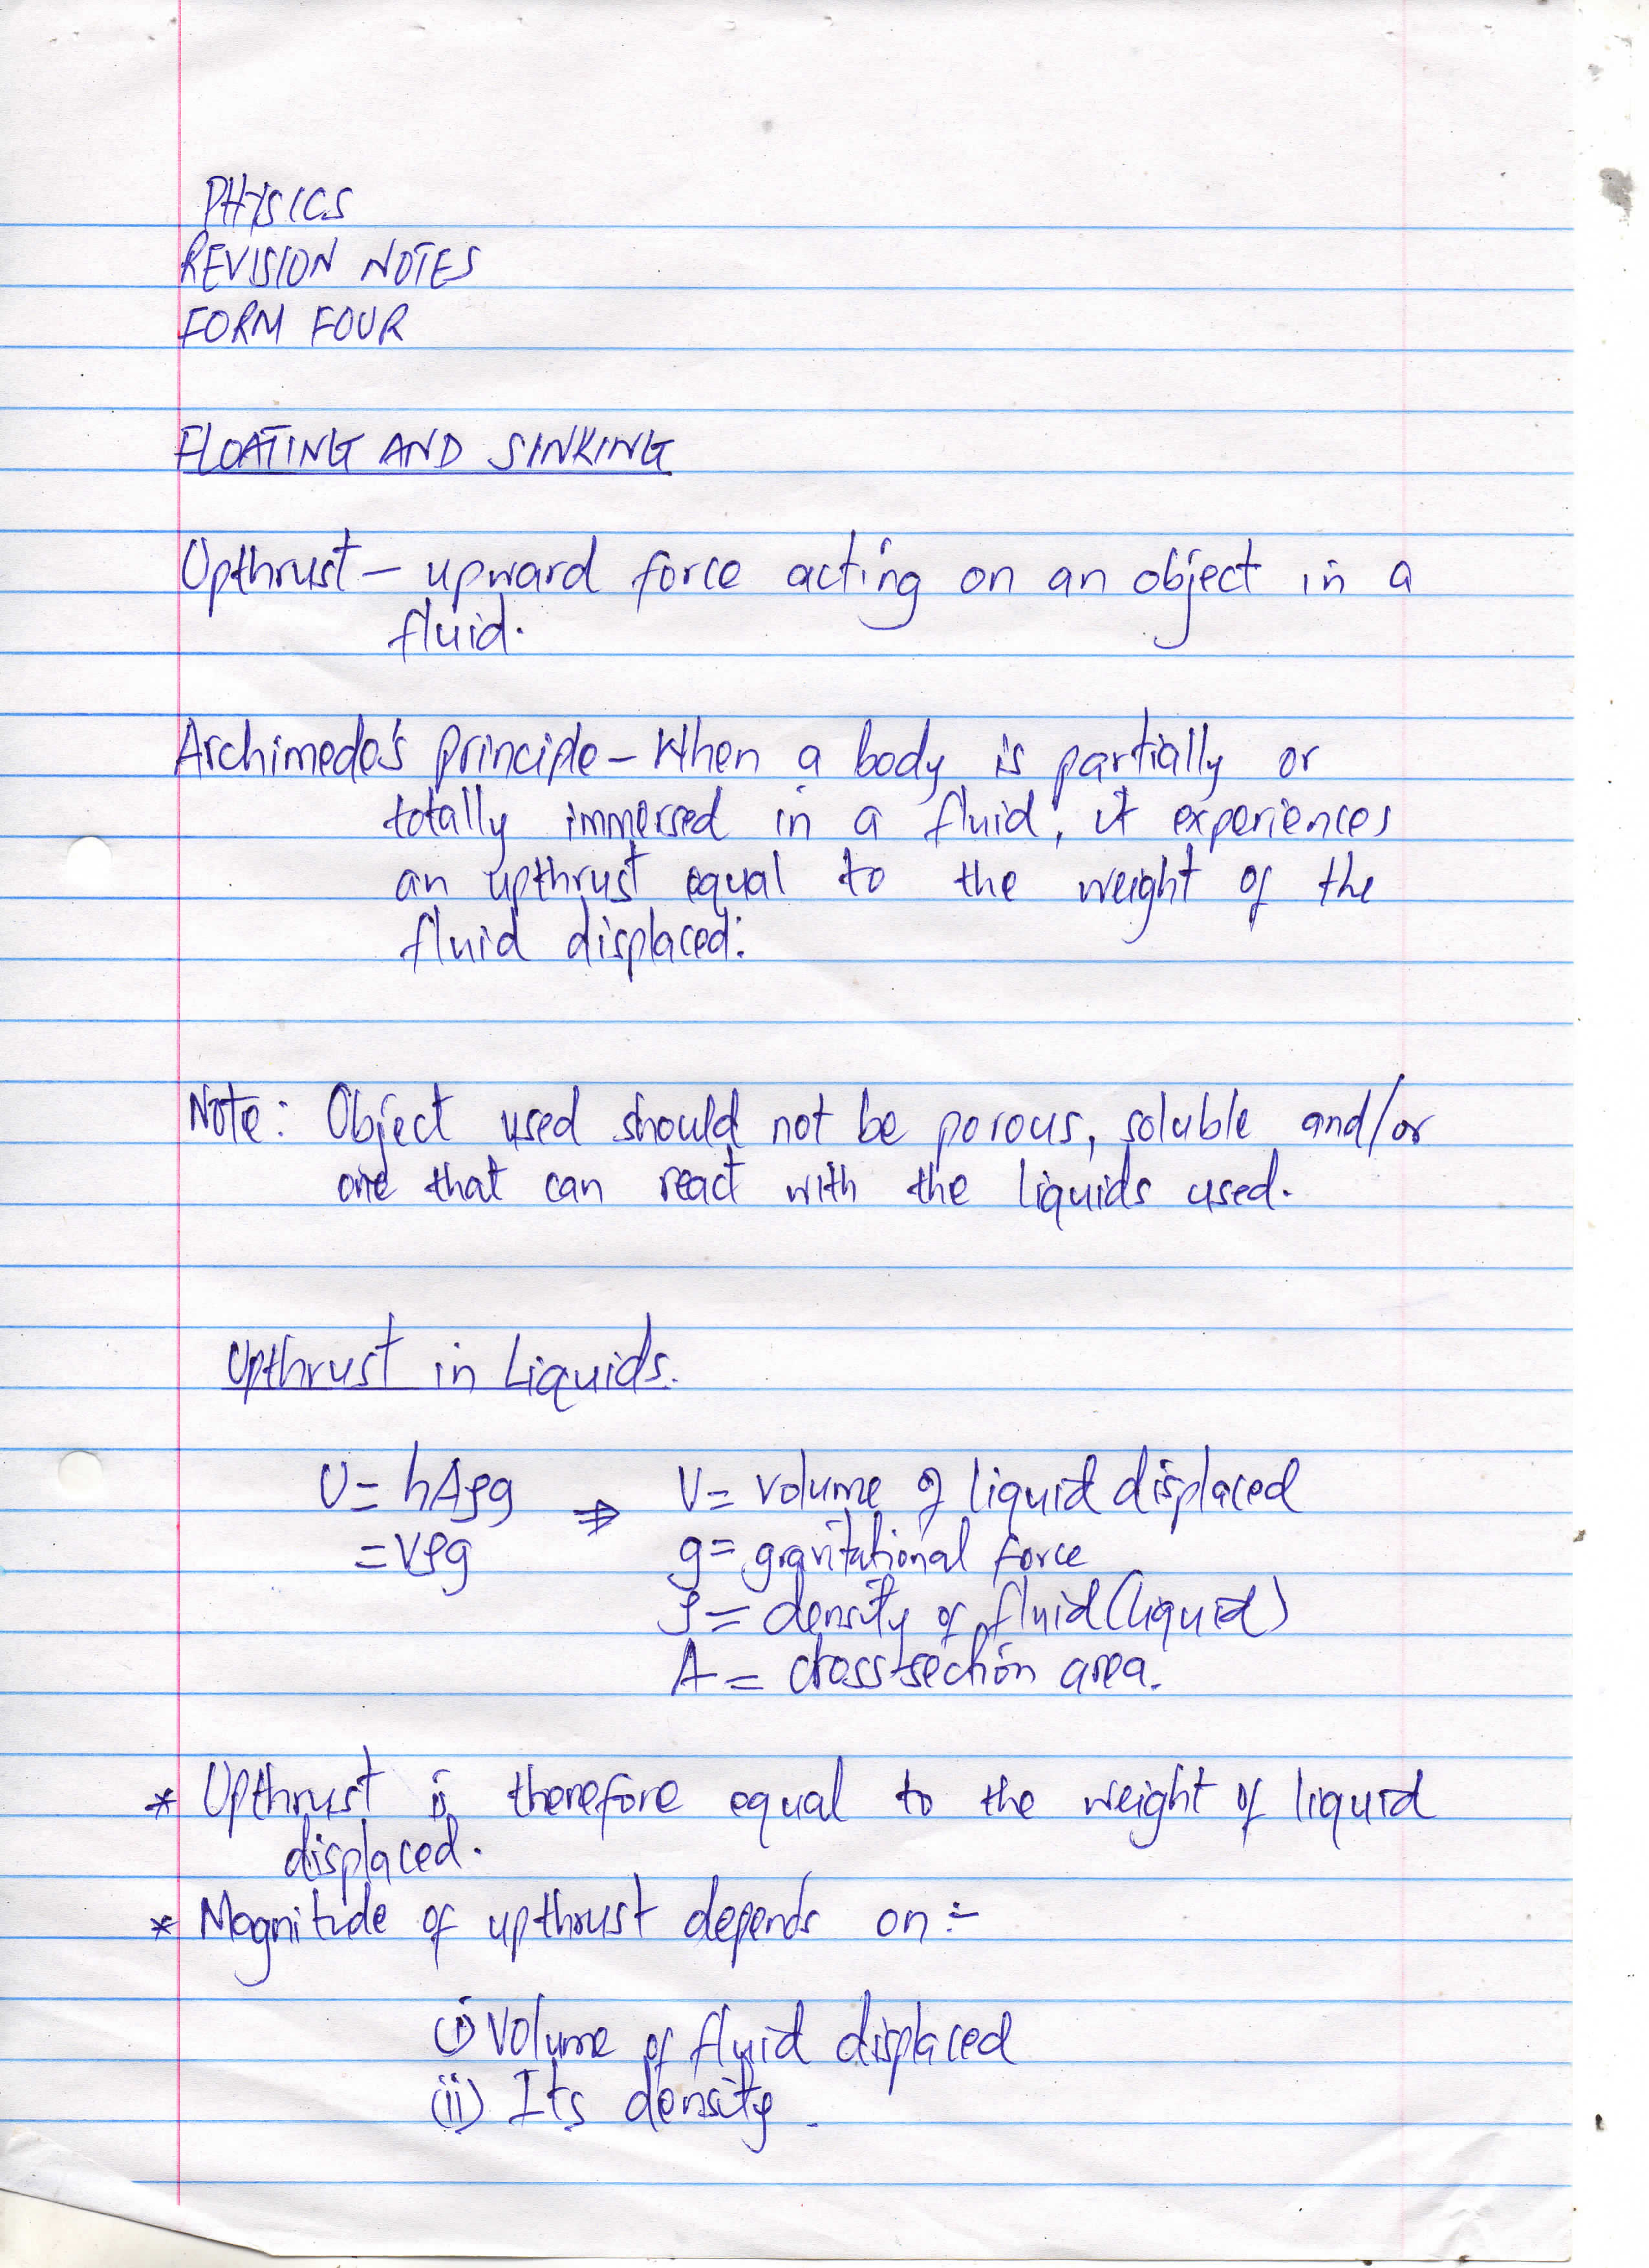 PHYSICS
REVISION NOTES
FORM FOUR
FLOATING AND SINKING
Upthrust – upward force acting on an object in a
fluid.
Archimede's principle – When a body is partially or
totally immersed in a fluid, it experiences
an upthrust equal to the weight of the
fluid displaced.
Note: Object used should not be porous, soluble and/or
one that can react with the liquids used.
Upthrust in Liquids.
U = hAρg ⇒ V = volume of liquid displaced
= Vρg g = gravitational force
ρ = density of fluid (liquid)
A = cross-section area.
* Upthrust is therefore equal to the weight of liquid
displaced.
* Magnitude of upthrust depends on :-
(i) Volume of fluid displaced
(ii) Its density.